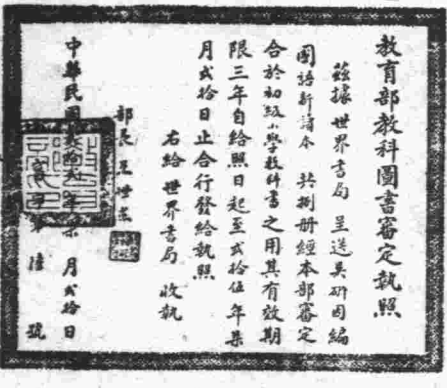 教育部教科圖書審定執照
茲據世界書局呈送吳研因編
國語新讀本 共捌冊經本部審定
合於初級小學教科書之用其有效期
限三年自給照日起至貳拾伍年柒
月貳拾日止合行發給執照
右給世界書局收執
部長王世杰
中華民國 年柒月貳拾日
字第陸號